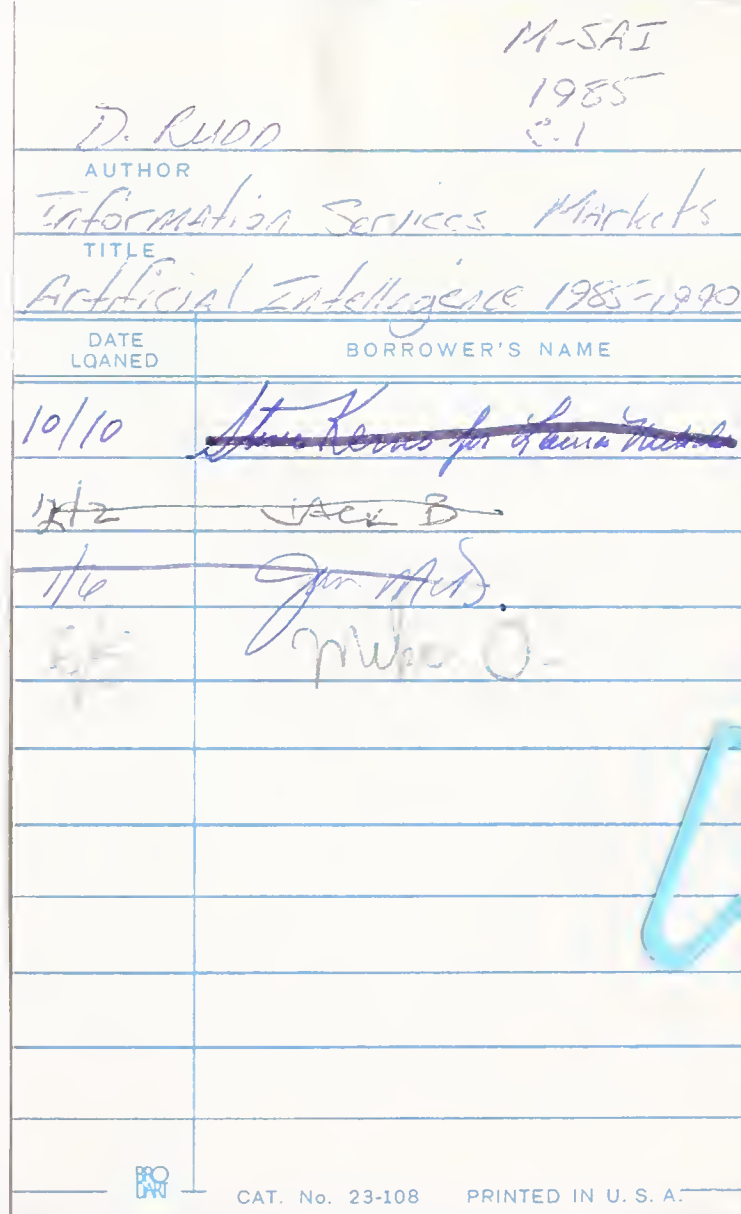 M-SAI
1985
D. RUDD C.1
AUTHOR
Information Services Markets
TITLE
Artificial Intelligence 1985-1990
DATE LOANED BORROWER'S NAME
10/10 Steve Kerns for Laura
12/2 JACK B
1/6 Jim
O.
BRO DART
CAT. No. 23-108 PRINTED IN U. S. A.